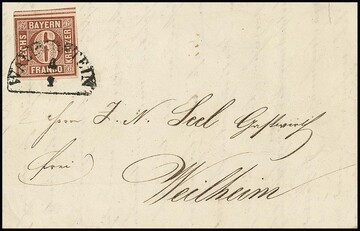 BAYERN
SECHS 6 KREUZER
FRANCO
4
9
Herrn J. N. Seel Gastwirth
frei
Weilheim